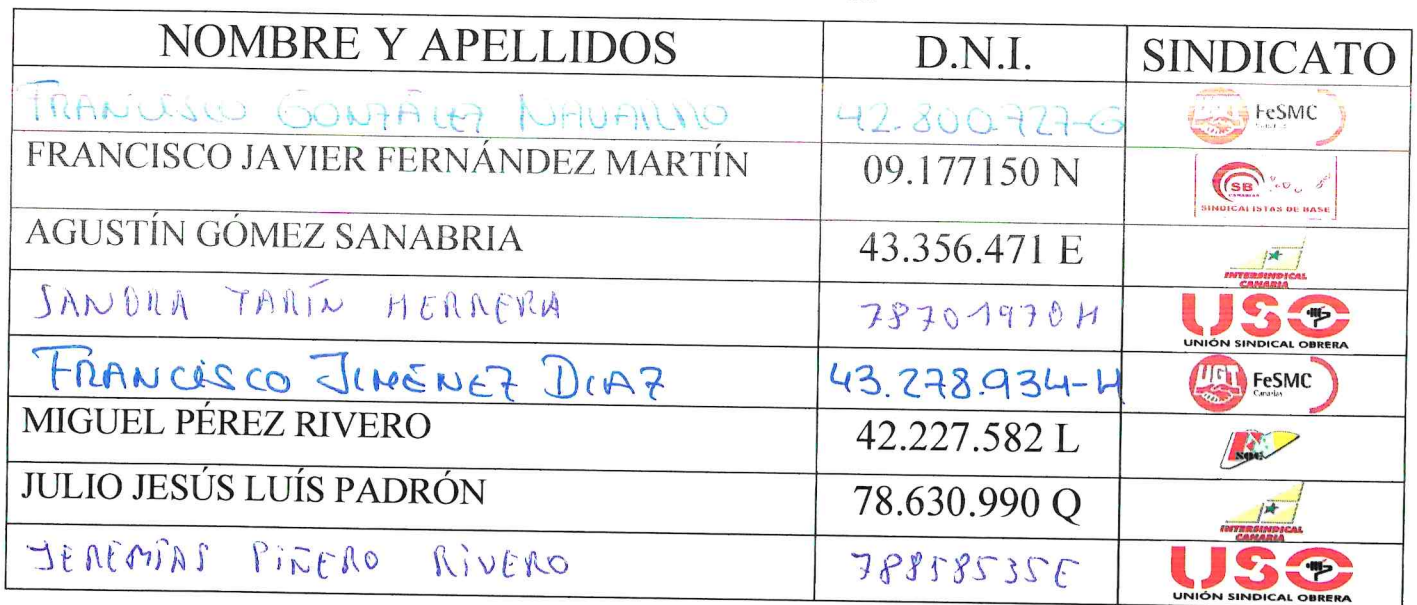 NOMBRE Y APELLIDOS D.N.I. SINDICATO
FRANCISCO GONZÁLEZ 42.800.727-G UGT FeSMC
FRANCISCO JAVIER FERNÁNDEZ MARTÍN 09.177150 N SB CANARIAS
SINDICALISTAS DE BASE
AGUSTÍN GÓMEZ SANABRIA 43.356.471 E INTERSINDICAL
CANARIA
SANDRA TARÍN HERRERA 78701970H USO
UNIÓN SINDICAL OBRERA
FRANCISCO JIMÉNEZ DIAZ 43.278.934-H UGT FeSMC
Canarias
MIGUEL PÉREZ RIVERO 42.227.582 L
JULIO JESÚS LUÍS PADRÓN 78.630.990 Q INTERSINDICAL
CANARIA
JEREMÍAS PIÑERO RIVERO 78858535E USO
UNIÓN SINDICAL OBRERA